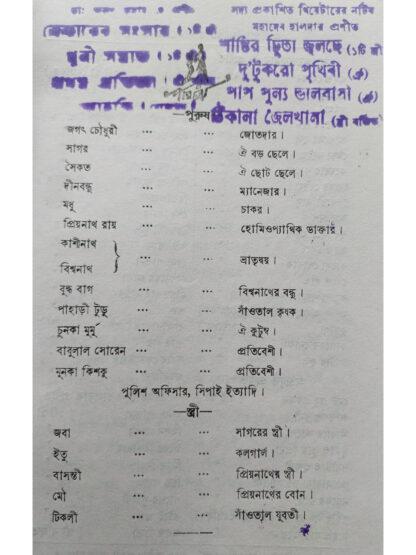 সদ্য প্রকাশিত থিয়েটারের নাটক
মহাদেব হালদার প্রণীত
শান্তির চিতা জ্বলছে
দু'টুকরো পৃথিবী
পাপ পুন্য ভালবাসা
ঠিকানা জেলখানা
—পুরুষ
জগৎ চৌধুরী ... ... জোতদার।
সাগর ... ... ঐ বড় ছেলে।
সৈকত ... ... ঐ ছোট ছেলে।
দীনবন্ধু ... ... ম্যানেজার।
মধু ... ... চাকর।
প্রিয়নাথ রায় ... ... হোমিওপ্যাথিক ডাক্তার।
কাশীনাথ
বিশ্বনাথ } ... ... ভ্রাতৃদ্বয়।
বুদ্ধ বাগ ... ... বিশ্বনাথের বন্ধু।
পাহাড়ী টুডু ... ... সাঁওতাল কৃষক।
চুনকা মুর্মু ... ... ঐ কুটুম্ব।
বাবুলাল সোরেন ... ... প্রতিবেশী।
মুনকা কিশকু ... ... প্রতিবেশী।
পুলিশ অফিসার, সিপাই ইত্যাদি।
—স্ত্রী—
জবা ... ... সাগরের স্ত্রী।
ইতু ... ... কলগার্ল।
বাসন্তী ... ... প্রিয়নাথের স্ত্রী।
মৌ ... ... প্রিয়নাথের বোন।
টিকলী ... ... সাঁওতাল যুবতী।